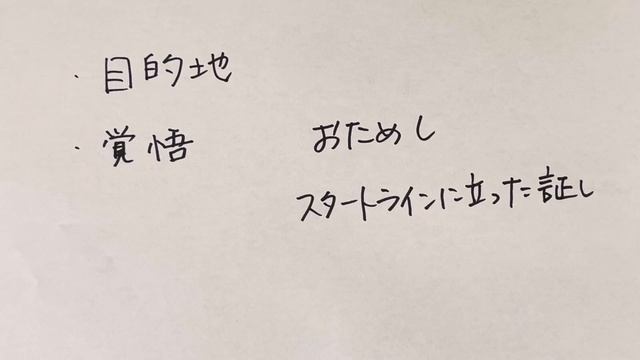 ・目的地
・覚悟
おためし
スタートラインに立った証し